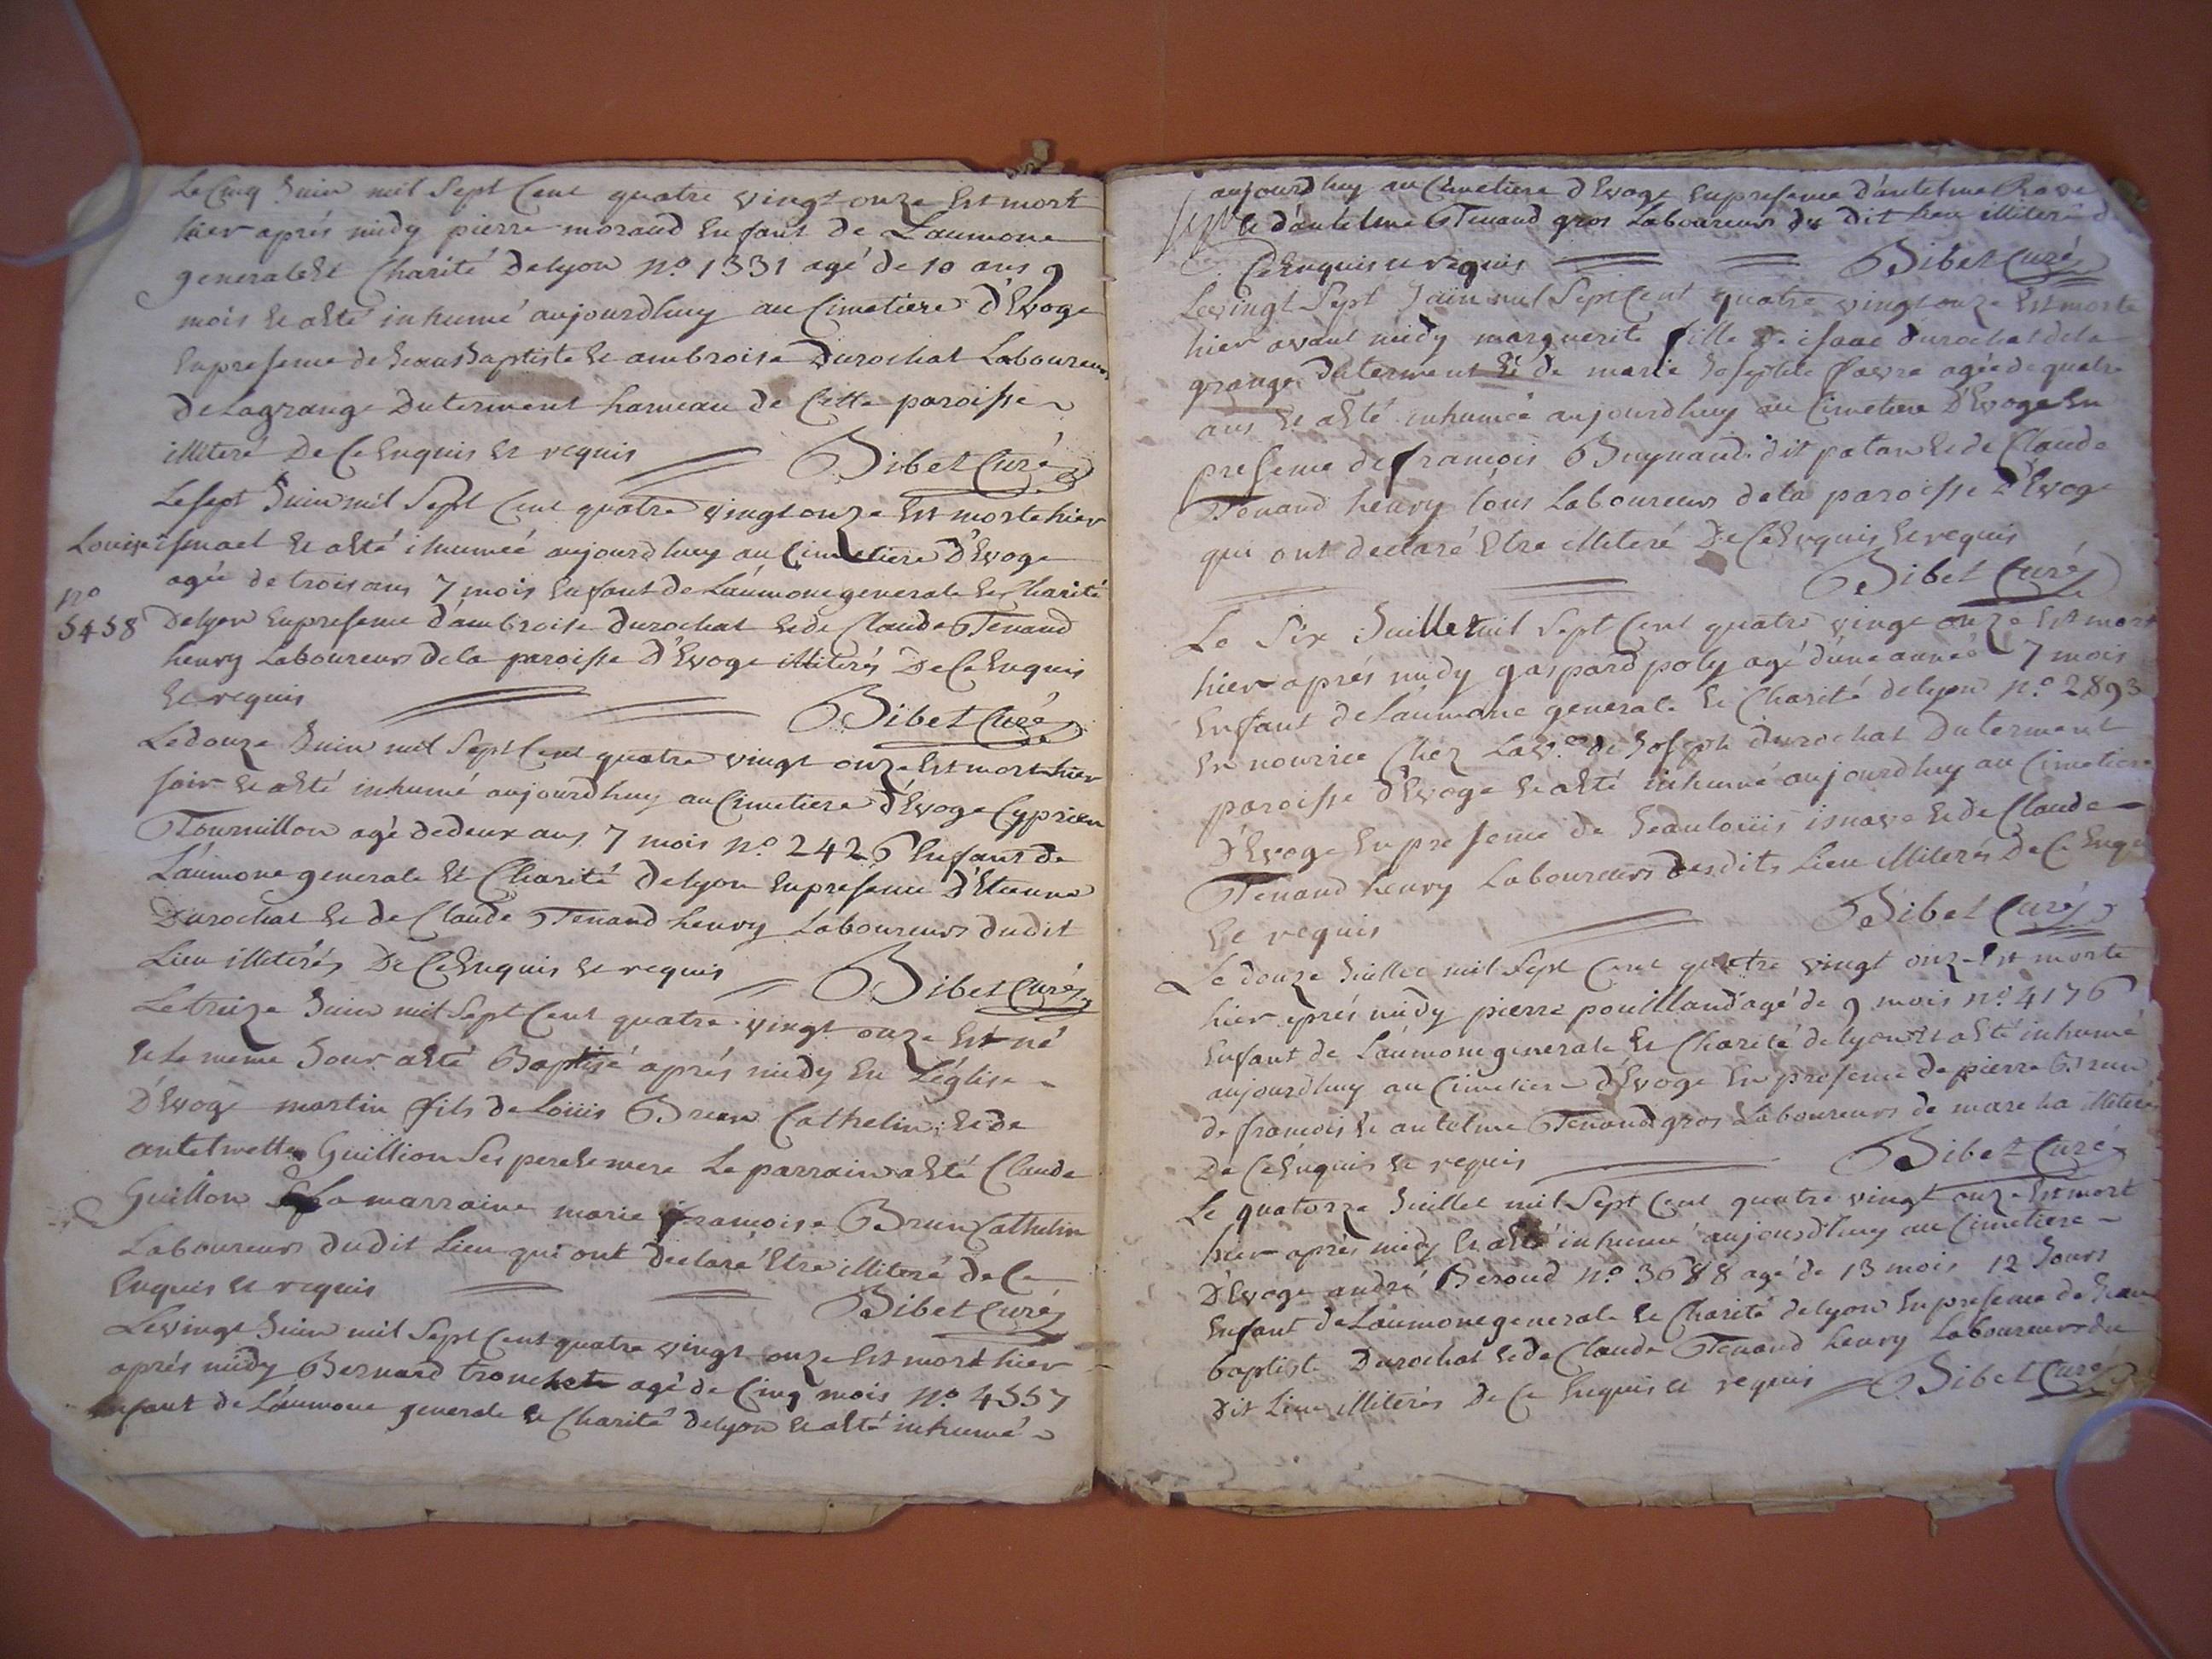 Le Cinq Juin mil Sept Cent quatre vingt onze Est mort
hier aprés midy pierre moraud Enfant de Laumone
generale Et Charité Delyon n.o 1331 agé de 10 ans 9
mois Et a Eté inhumé aujourdhuy au Cimetiere d'Evoge
En presence de Jean Baptiste Et ambroise Durochat Laboureurs
De Lagrange Duterment hameau de Cette paroisse
illiteré De Ce Enquis Et requis Bibet Curé
Le sept Juin mil Sept Cent quatre vingt onze Est morte hier
Louise ismael Et a Eté ihumeé aujourdhuy au Cimetiere D'Evoge
agée de trois ans 7 mois Enfant de Laúmone generale Et Charité
n.o
5458 Delyon En presence d'ambroise durochat Et de Claude Tenand
henry Laboureurs de la paroisse D'Evoge illiterés De Ce Enquis
Et requis Bibet Curé
Le douze Juin mil Sept Cent quatre vingt onze Est mort hier
soir Et a Eté inhumé aujourdhuy au Cimetiere d'Evoge Cyprien
Tournillon agé de deux ans 7 mois n.o 2426 Enfant de
L'aumone generale Et Charité delyon En presence D'Etienne
Durochat Et de Claude Tenand henry Laboureurs dudit
Lieu illiterés De Ce Enquis Et requis Bibet Curé
Le treize Juin mil Sept Cent quatre vingt onze Est né
Et le meme Jour a Eté Baptisé aprés midy En L'église
D'Evoge martin fils de Loüis Brun Cathelin Et de
antelmette Guillion Ses pere Et mere Le parrain a Eté Claude
Guillon La marraine marie françoise Brun Cathelin
Laboureurs dudit Lieu qui ont declaré Etre illiteré de Ce
Enquis Et requis Bibet Curé
Le vingt Juin mil Sept Cent quatre vingt onze Est mort hier
aprés midy Bernard agé de Cinq mois n.o 4557
Enfant de L'aumone generale Et Charité delyon Et a Eté inhumé
aujourdhuy au Cimetiere d'Evoge En presence d'antelme
Et d'antelme Tenand gros Laboureurs du Dit lieu illiteré de
Ce Enquis Et requis Bibet Curé
Le vingt Sept Juin mil Sept Cent quatre vingt onze Est morte
hier avant midy marguerite fille de isaac durochat de la
grange Duterment Et de marie Josephte favre agée de quatre
ans Et a Eté inhumée aujourdhuy au Cimetiere D'Evoge En
presence de françois Buynand dit patan Et de Claude
Tenand henry tous Laboureurs de la paroisse d'Evoge
qui ont declaré Etre illiteré De Ce Enquis Et requis
Bibet Curé
Le Six Juillet mil Sept Cent quatre vingt onze Est mort
hier aprés midy gaspard poly agé d'une année 7 mois
Enfant de Laumone generale Et Charité delyon n.o 2893
En nourrice Chez La v.e de Joseph durochat Duterment
paroisse d'Evoge Et a Eté inhumé aujourdhuy au Cimetiere
D'Evoge En presence de Jean louis isnave Et de Claude
Tenand henry Laboureurs desdits Lieu illiterés De Ce Enquis
Et requis Bibet Curé
Le douze Juillet mil Sept Cent quatre vingt onze Est morte
hier aprés midy pierre pouilland agé de 9 mois n.o 4176
Enfant de Laumone generale Et Charité de lyon Et a Eté inhumé
aujourdhuy au Cimetiere d'Evoge En presence de pierre Brun
de françois Et antelme Tenand gros Laboureurs de illiteré
De Ce Enquis Et requis Bibet Curé
Le quatorze Juillet mil Sept Cent quatre vingt onze Est mort
hier aprés midy Et a Eté inhumé aujourdhuy au Cimetiere
D'Evoge andré Beroud n.o 3688 agé de 13 mois 12 Jours
Enfant de Laumone generale Et Charité delyon En presence de Jean
baptiste Durochat Et de Claude Tenand henry Laboureurs du
Dit Lieu illiterés De Ce Enquis Et requis Bibet Curé